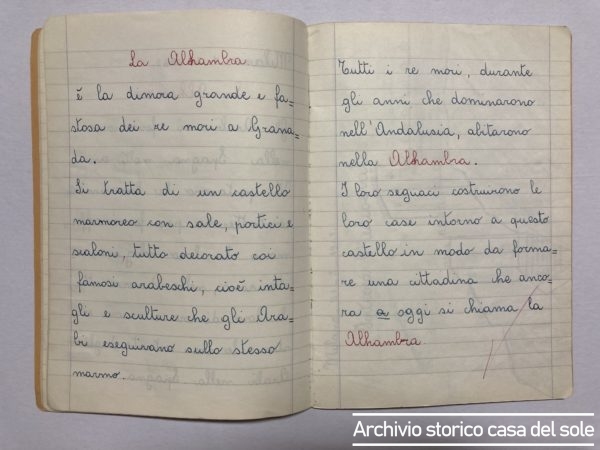 La Alhambra
è la dimora grande e fa=
stosa dei re mori a Grana=
da.
Si tratta di un castello
marmoreo con sale, portici e
scaloni, tutto decorato coi
famosi arabeschi, cioè inta=
gli e sculture che gli Ara=
bi eseguivano sullo stesso
marmo.
Tutti i re mori, durante
gli anni che dominarono
nell'Andalusia, abitarono
nella Alhambra.
I loro seguaci costruirono le
loro case intorno a questo
castello in modo da forma=
re una cittadina che anco=
ra a oggi si chiama la
Alhambra
Archivio storico casa del sole